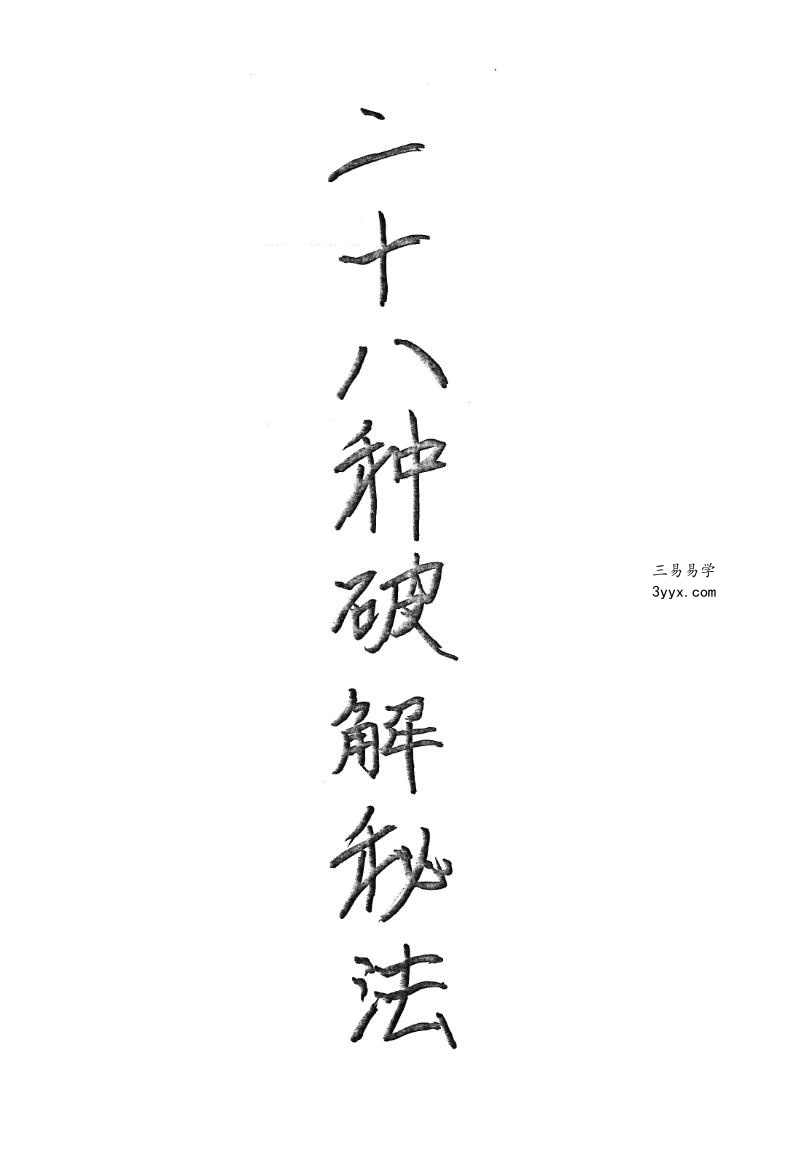 二十八种破解秘法
三易易学
3yyx.com